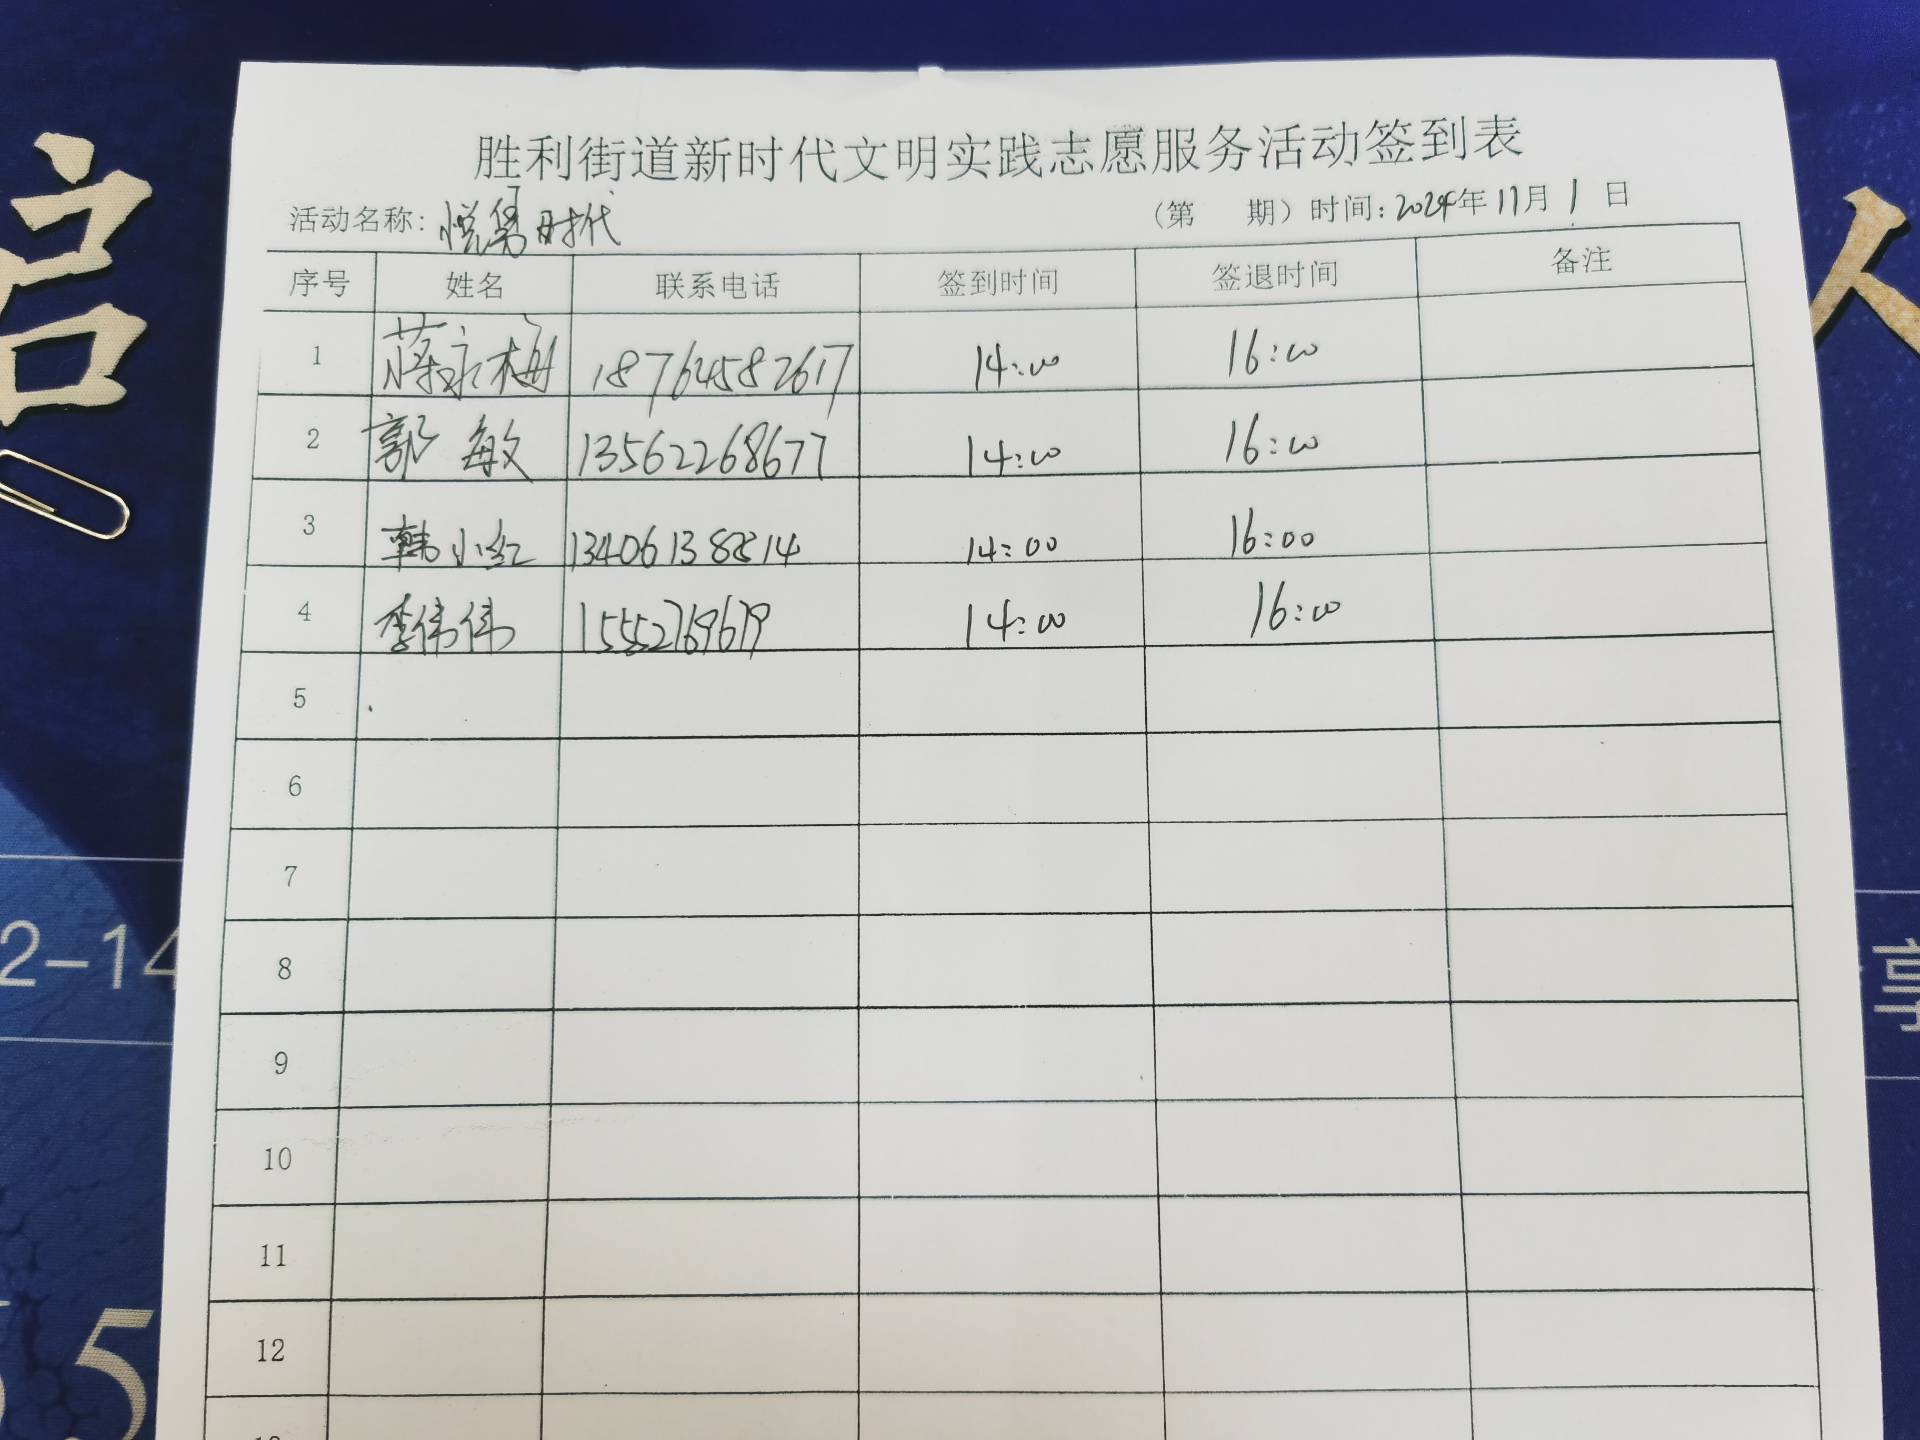 胜利街道新时代文明实践志愿服务活动签到表
活动名称: 悦享时代 (第 期) 时间: 2024年11月1日
序号 姓名 联系电话 签到时间 签退时间 备注
1 蒋永梅 18764582617 14:00 16:00
2 郭敏 13562268677 14:00 16:00
3 韩小红 13406138814 14:00 16:00
4 李伟伟 15552769679 14:00 16:00
5
6
7
8
9
10
11
12
启
人
2-14
享
5